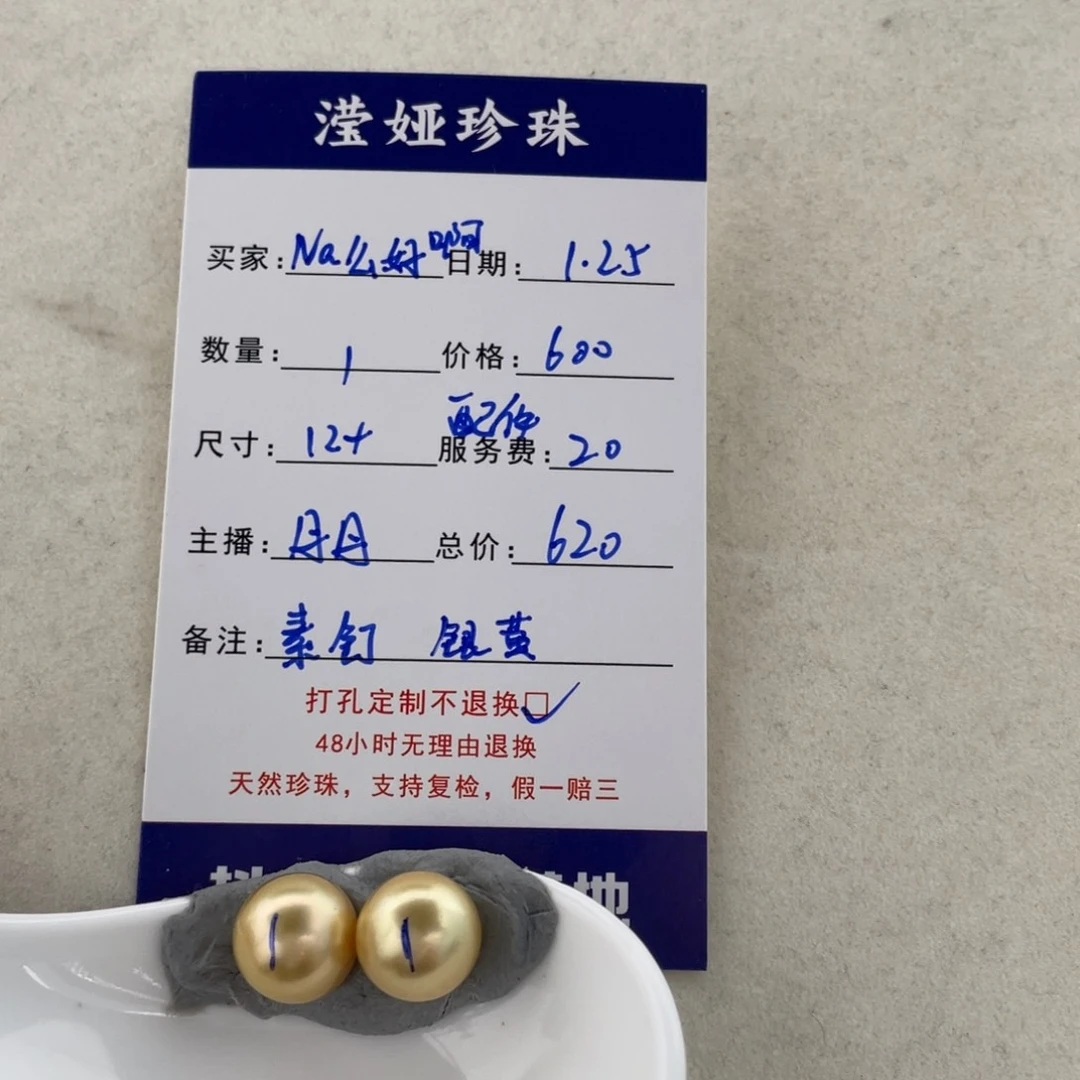 滢娅珍珠
买家:Na么好啊 日期: 1.25
数量: 1 价格: 600
尺寸: 12+ 配件
服务费: 20
主播: 丹丹 总价: 620
备注: 素钉 银黄
打孔定制不退换□✓
48小时无理由退换
天然珍珠，支持复检，假一赔三
地
1 1